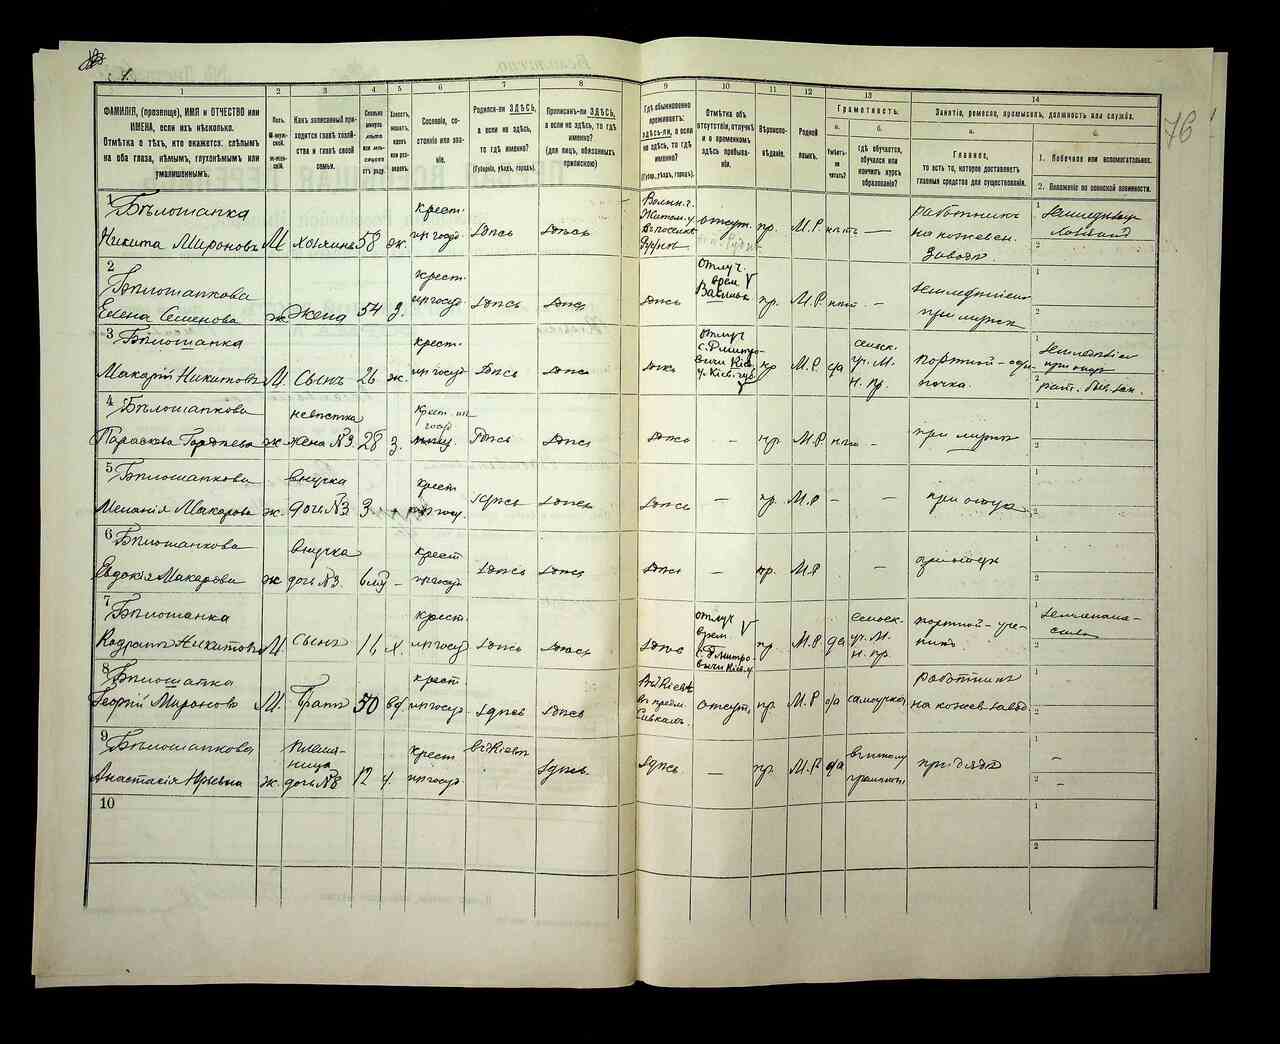 1.
76
1
2
3
4
5
6
7
8
9
10
11
12
13
14
ФАМИЛІЯ, (прозвище), ИМЯ и ОТЧЕСТВО или
ИМЕНА, если ихъ нѣсколько.
Отмѣтка о тѣхъ, кто окажется: слѣпымъ
на оба глаза, нѣмымъ, глухонѣмымъ или
умалишеннымъ.
Полъ.
М-муж-
ской.
Ж-жен-
скій.
Какъ записанный при-
ходится главѣ хозяй-
ства и главѣ своей
семьи.
Сколько
минуло
лѣтъ
или мѣ-
сяцевъ
отъ роду.
Холостъ,
женатъ,
вдовъ
или раз-
веденъ.
Сословіе, со-
стояніе или зва-
ніе.
Родился-ли ЗДѢСЬ,
а если не здѣсь,
то гдѣ именно?
(Губернія, уѣздъ, городъ).
Приписанъ-ли ЗДѢСЬ,
а если не здѣсь, то гдѣ
именно?
(для лицъ, обязанныхъ
припискою)
Гдѣ обыкновенно
проживаетъ:
здѣсь-ли, а если
не здѣсь, то гдѣ
именно?
(Губер., уѣздъ, городъ).
Отмѣтка объ
отсутствіи, отлучкѣ
и о временномъ
здѣсь пребыва-
ніи.
Вѣроиспо-
вѣданіе.
Родной
языкъ.
Грамотность.
а.
Умѣетъ-
ли
читать?
б.
гдѣ обучается,
обучался или
кончилъ курсъ
образованія?
Занятіе, ремесло, промыселъ, должность или служба.
а.
Главное,
то есть то, которое доставляетъ
главныя средства для существованія.
б.
1. Побочное или вспомогательное.
2. Положеніе по воинской повинности.
1
Бѣлошапка
Никита Мироновъ М хозяинъ 58 ж.
крест.
из госуд.
здѣсь здѣсь
Волын. г.
Житом. у.
отсут. пр. М.Р. нѣтъ —
работникъ
на кожевен.
заводѣ
1
2
2
Бѣлошапкова
Елена Семенова ж жена 54 з.
крест.
из госуд
здѣсь здѣсь здѣсь
отлуч.
врем.
пр. М.Р. нѣт. -
при мужѣ
1
2
3
Бѣлошапка
Макарій Никитовъ М. Сынъ 26 ж.
крест.
из госуд
здѣсь здѣсь здѣсь
отлуч
с. Дмитро-
вичи Кіев.
у. Кіев. губ.
пр М.Р. да
сельск.
уч. М.
н. пр.
портной - оди-
ночка.
1
2
4
Бѣлошапкова
невѣстка
Параскова Гордѣева ж жена №3 28 з.
крест. из
госуд
здѣсь здѣсь здѣсь - пр. М.Р. нѣт -
при мужѣ
1
2
5
Бѣлошапкова
внучка
Меланія Макарова ж. дочь №3 3 -
крест
из госуд.
здѣсь здѣсь здѣсь — пр. М.Р - -
при отцѣ
1
2
6
Бѣлошапкова
внучка
Евдокія Макарова ж дочь №3.
крест
из госуд
здѣсь здѣсь здѣсь - пр. М.Р
при отцѣ
1
2
7
Бѣлошапка
Кодратъ Никитовъ М. Сынъ 16 х.
крест.
из госуд
здѣсь здѣсь здѣсь
отлуч
врем.
с. Дмитро-
вичи Кіев. у
пр М.Р. да
сельск.
уч. М.
н. пр.
портной - уче-
никъ
1
2
8
Бѣлошапка
Георгій Мироновъ М. Братъ 50 вд
крест
из госуд.
здѣсь здѣсь
въ Кіевѣ
въ предм.
отсут. пр. М.Р да самоучка
работникъ
на кожев. завод.
1
2
9
Бѣлошапкова
племя-
ница
Анастасія Юрьева ж. дочь №8 12 -
крест
из госуд.
въ Кіевѣ
здѣсь. здѣсь — пр. М.Р да
въ школу
грамоты
при дядѣ
1
-
2
-
10
1
2